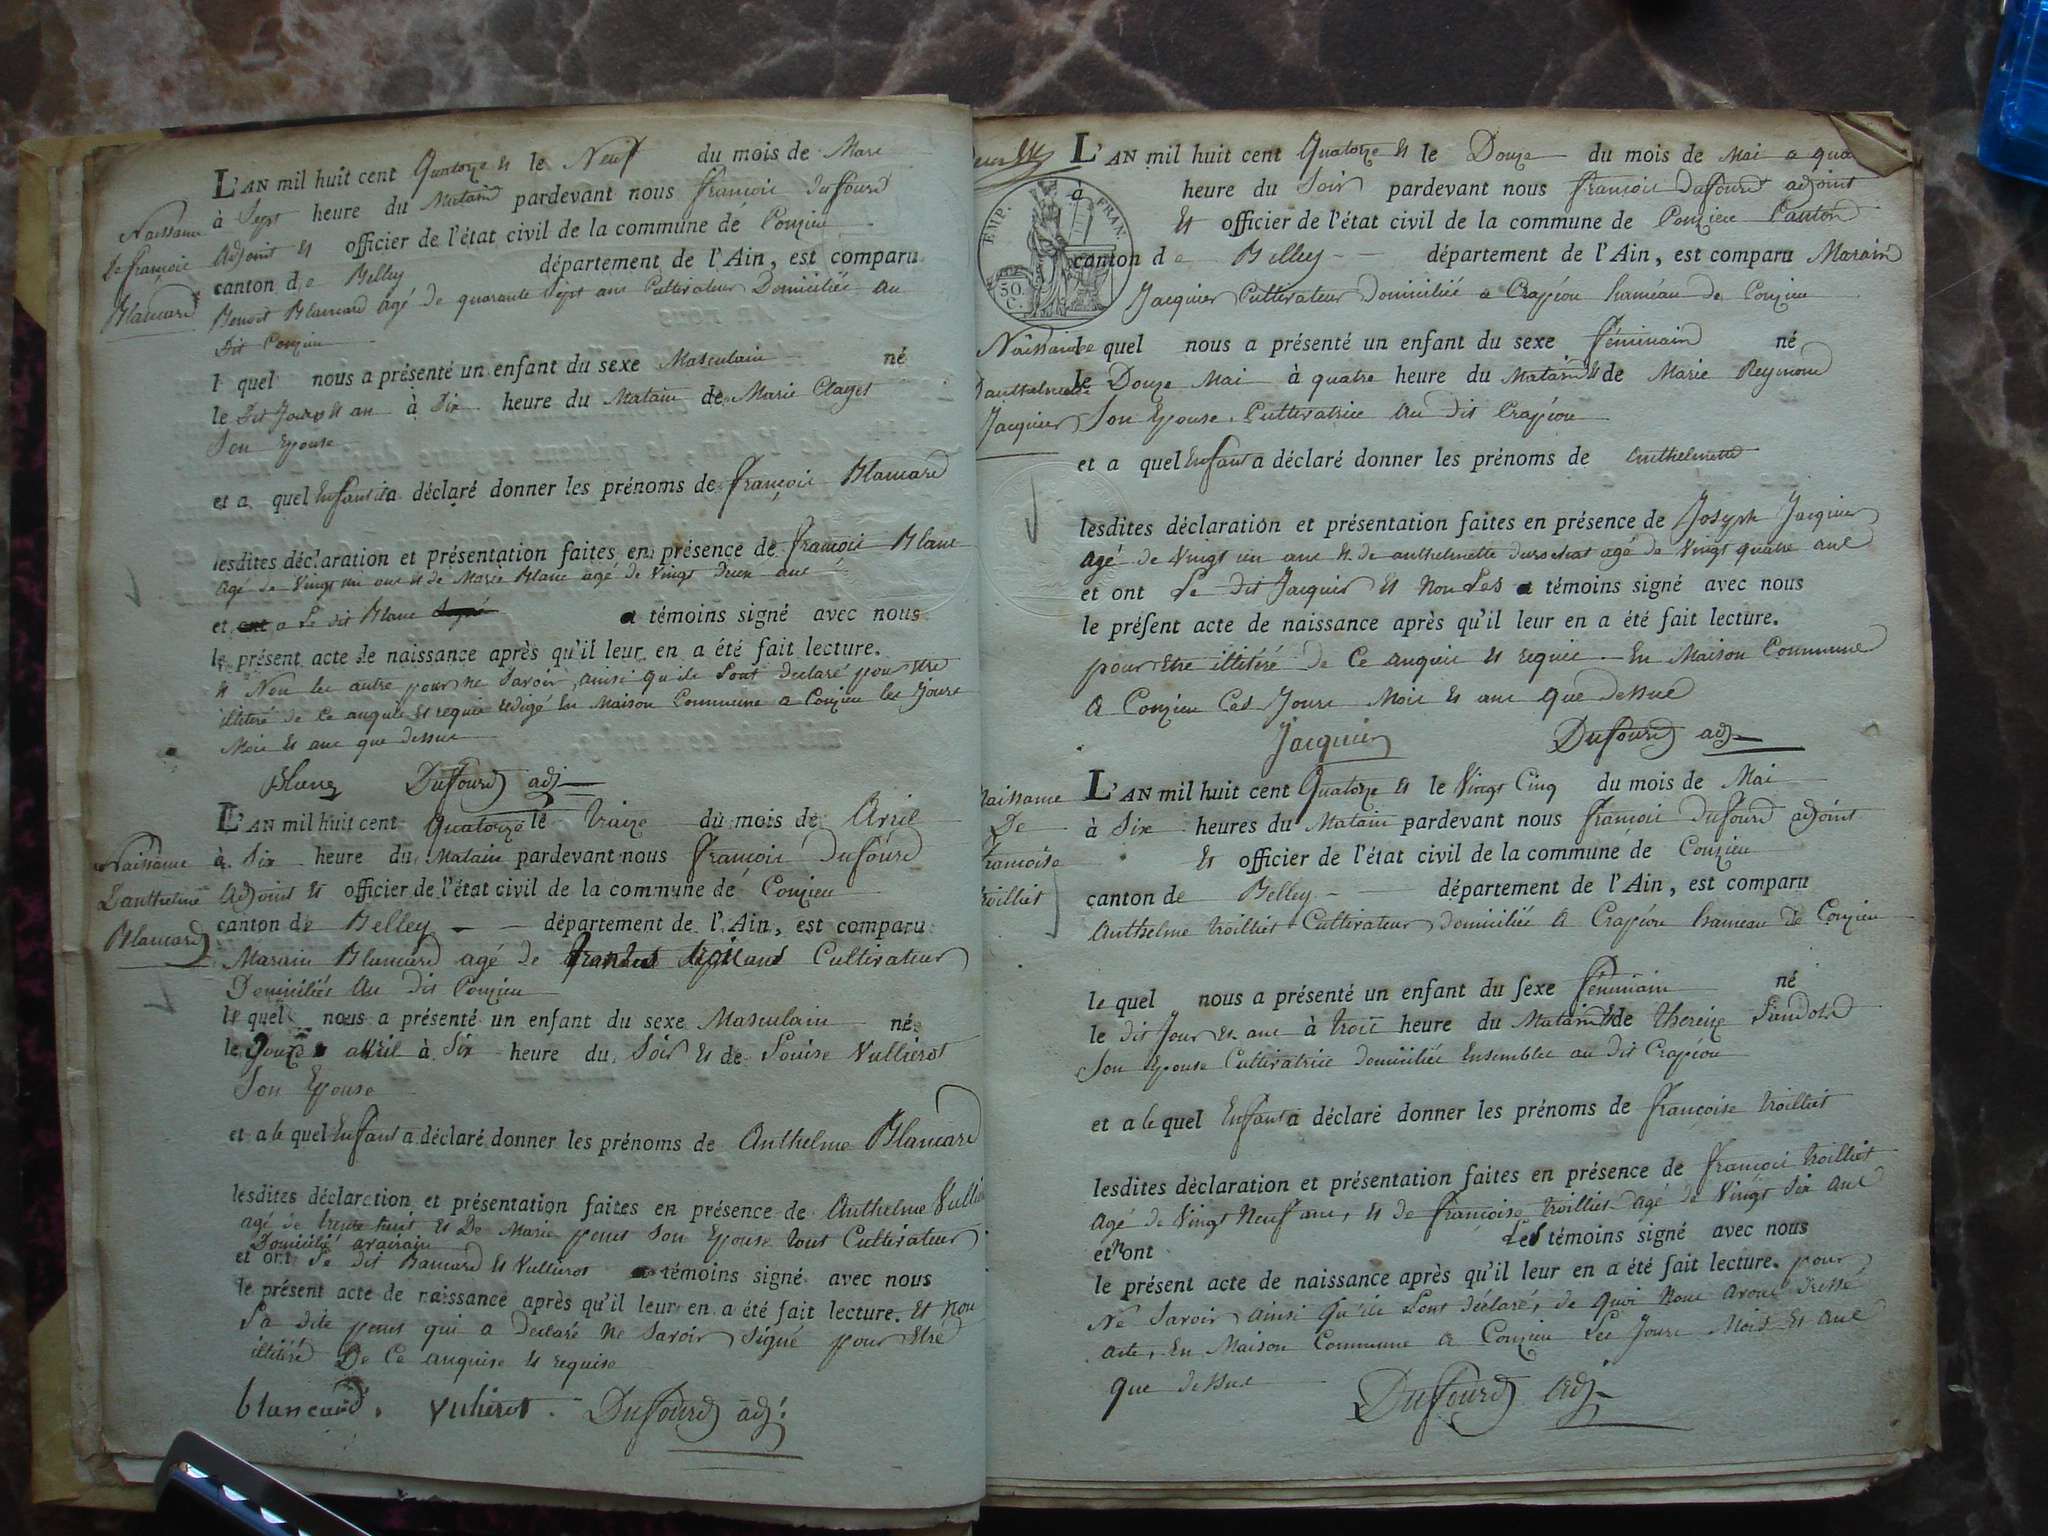 L'AN mil huit cent Quatorze et le Neuf du mois de Mars
à Sept heure du Matain pardevant nous françois dufourd
Adjoint et officier de l'état civil de la commune de Conzieu
canton de Belley département de l'Ain, est comparu
Benoit Blancard agé de quarante sept ans Cultivateur Domiciliée au
Dit Conzieu
Naissance
De françois
Blancard
l quel nous a présenté un enfant du sexe Masculain né
le Dit Jours et an à Six heure du Matain de Marie Clayet
Son Epouse
et a quel Enfant il a déclaré donner les prénoms de françois Blancard
lesdites déclaration et présentation faites en présence de françois Blanc
agé de Vingt un ans et de Marie Blanc agé de Vingt deux ans
et ont a Le dit Blanc signé témoins signé avec nous
le présent acte de naissance après qu'il leur en a été fait lecture.
et Non les autre pour ne Savoir ainsi qu'ils Sont declaré pour etre
illiteré de Ce anquis et requis redigé En Maison Commune a Conzieu les Jours
Mois et ans que dessus
Blanc Duffourd adj
L'AN mil huit cent Quatorze le traize du mois de Avril
à Six heure du Matain pardevant nous françois Dufourd
Adjoint et officier de l'état civil de la commune de Conzieu
canton de Belley département de l'Ain, est comparu
Marain Blancard agé de Cultivateur
Domiciliés Au dit Conzieu
Naissance
D'anthelme
Blancard
le quel nous a présenté un enfant du sexe Masculain né
le Douze avril à Six heure du Soir et de Louise Vullierot
Son Epouse
et a le quel Enfant a déclaré donner les prénoms de Anthelme Blancard
lesdites déclaration et présentation faites en présence de Anthelme Vulli
agé de trente huit et De Marie penet Son Epouse tous Cultivateur
Domicilié
et ont Le dit Bancard et Vullierot témoins signé avec nous
le présent acte de naissance après qu'il leur en a été fait lecture. Et non
La dite penet qui a declaré ne Savoir Signé pour Etre
illitéré De Ce anquise et requise
blancard. vulierot. Duffourd adj.
L'AN mil huit cent Quatorze et le Douze du mois de Mai a qua
heure du Soir pardevant nous françois Dufourd adjoint
Et officier de l'état civil de la commune de Conzieu Canton
canton de Belley département de l'Ain, est comparu Marain
Jacquier Cultivateur domiciliée a Crapéou hameau de Conzieu
EMP. FRAN.
50
C.
Naissance
D'anthelmette
Jacquier
le quel nous a présenté un enfant du sexe féminain né
le Douze Mai à quatre heure du Matain et de Marie Reymond
Son Epouse Cultivatrice Au dit Crapéou
et a quel Enfant a déclaré donner les prénoms de anthelmette
lesdites déclaration et présentation faites en présence de Joseph Jacquier
agé de Vingt un ans et de anthelmette agé de Vingt quatre ans
et ont Le dit Jacquier et Non Les témoins signé avec nous
le présent acte de naissance après qu'il leur en a été fait lecture.
pour Etre illitéré de Ce anquis et requis. En Maison Commune
a Conzieu Ces Jours Mois et ans que dessus
Jacquier Duffourd adj
L'AN mil huit cent Quatorze et le Vingt Cinq du mois de Mai
à Six heures du Matain pardevant nous françois Dufourd adjoint
Et officier de l'état civil de la commune de Conzieu
canton de Belley département de l'Ain, est comparu
Anthelme troilliet Cultivateur domiciliée a Crapéou hameau de Conzieu
Naissance
De
françoise
troilliet
le quel nous a présenté un enfant du sexe féminain né
le dit Jour et an à trois heure du Matain et de thereize Sandoz
Son Epouse Cultivatrice domiciliée Ensembles au dit Crapéou
et a le quel Enfant a déclaré donner les prénoms de françoise troilliet
lesdites déclaration et présentation faites en présence de françois troilliet
Agé de Vingt Neuf ans, et de françoise troilliet agé de Vingt Six ans
et n'ont Les témoins signé avec nous
le présent acte de naissance après qu'il leur en a été fait lecture. pour
Ne Savoir ainsi qu'ils Sont déclaré, de quoi Nous avons dressé
acte, En Maison Commune a Conzieu Les Jours Mois et ans
que dessus Duffourd adj